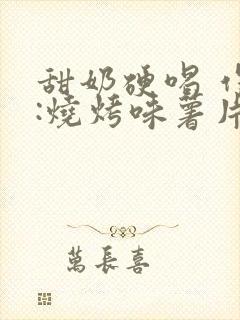 甜奶硬唱
:燒烤味薯片
萬長喜